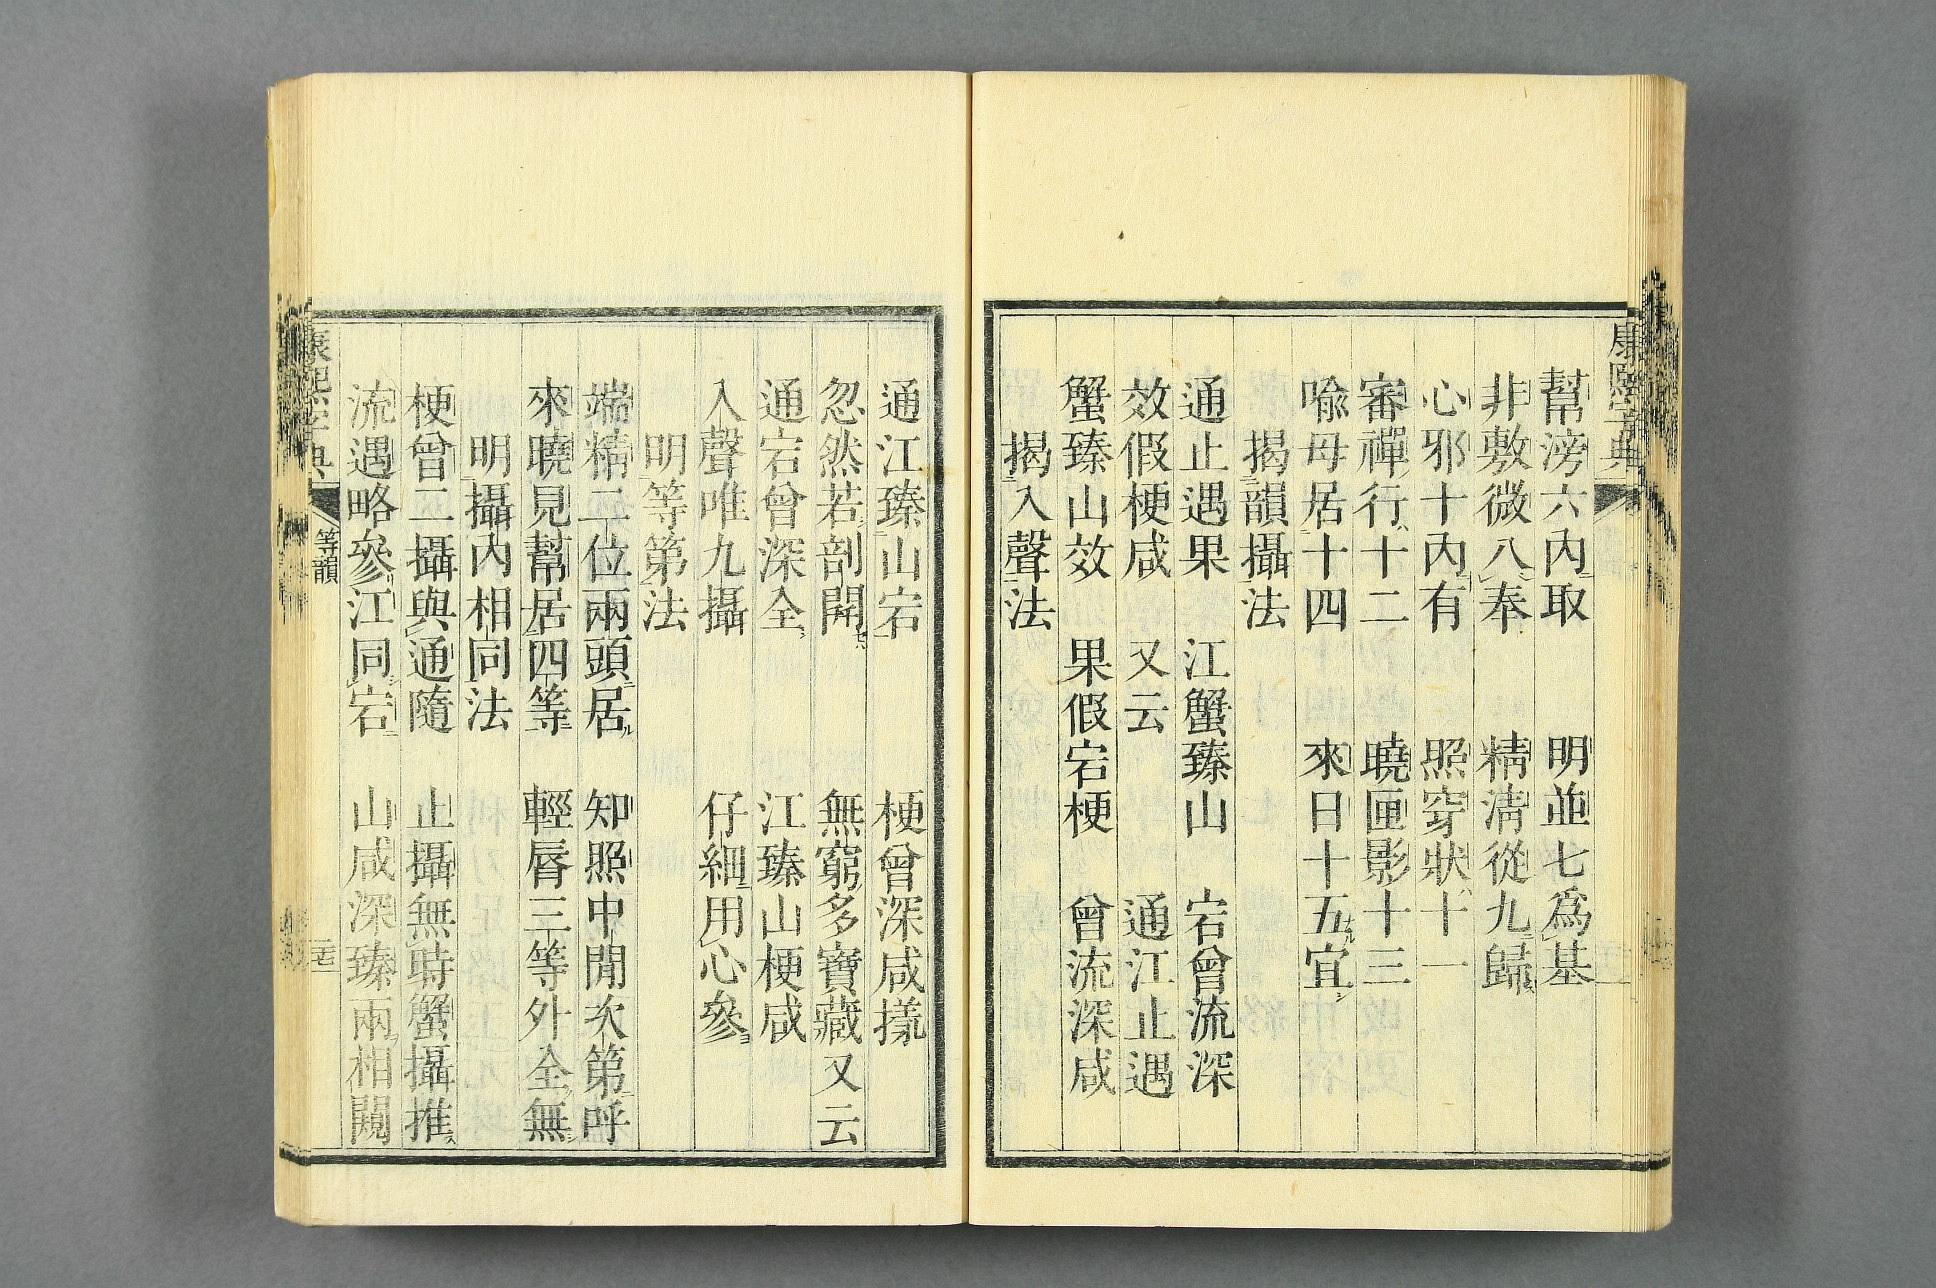 康熙字典
幫滂六內取　明並七為基
非敷微八奉　精清從九歸
心邪十內有　照穿狀十一
審禪行十二　曉匣影十三
喻母居十四　來日十五宜
揭韻攝法
通止遇果　江蟹臻山　宕曾流深
效假梗咸　又云　通江止遇
蟹臻山效　果假宕梗　曾流深咸
揭入聲法
通江臻山宕　梗曾深咸㨾
忽然若剖開　無窮多寶藏又云
通宕曾深全　江臻山梗咸
入聲唯九攝　仔細用心參
明等第法
端精二位兩頭居　知照中閒次第呼
來曉見幫居四等　輕脣三等外全無
明攝內相同法
梗曾二攝與通隨　止攝無時蟹攝推
流遇略參江同宕　山咸深臻兩相闚
康熙字典
等韻